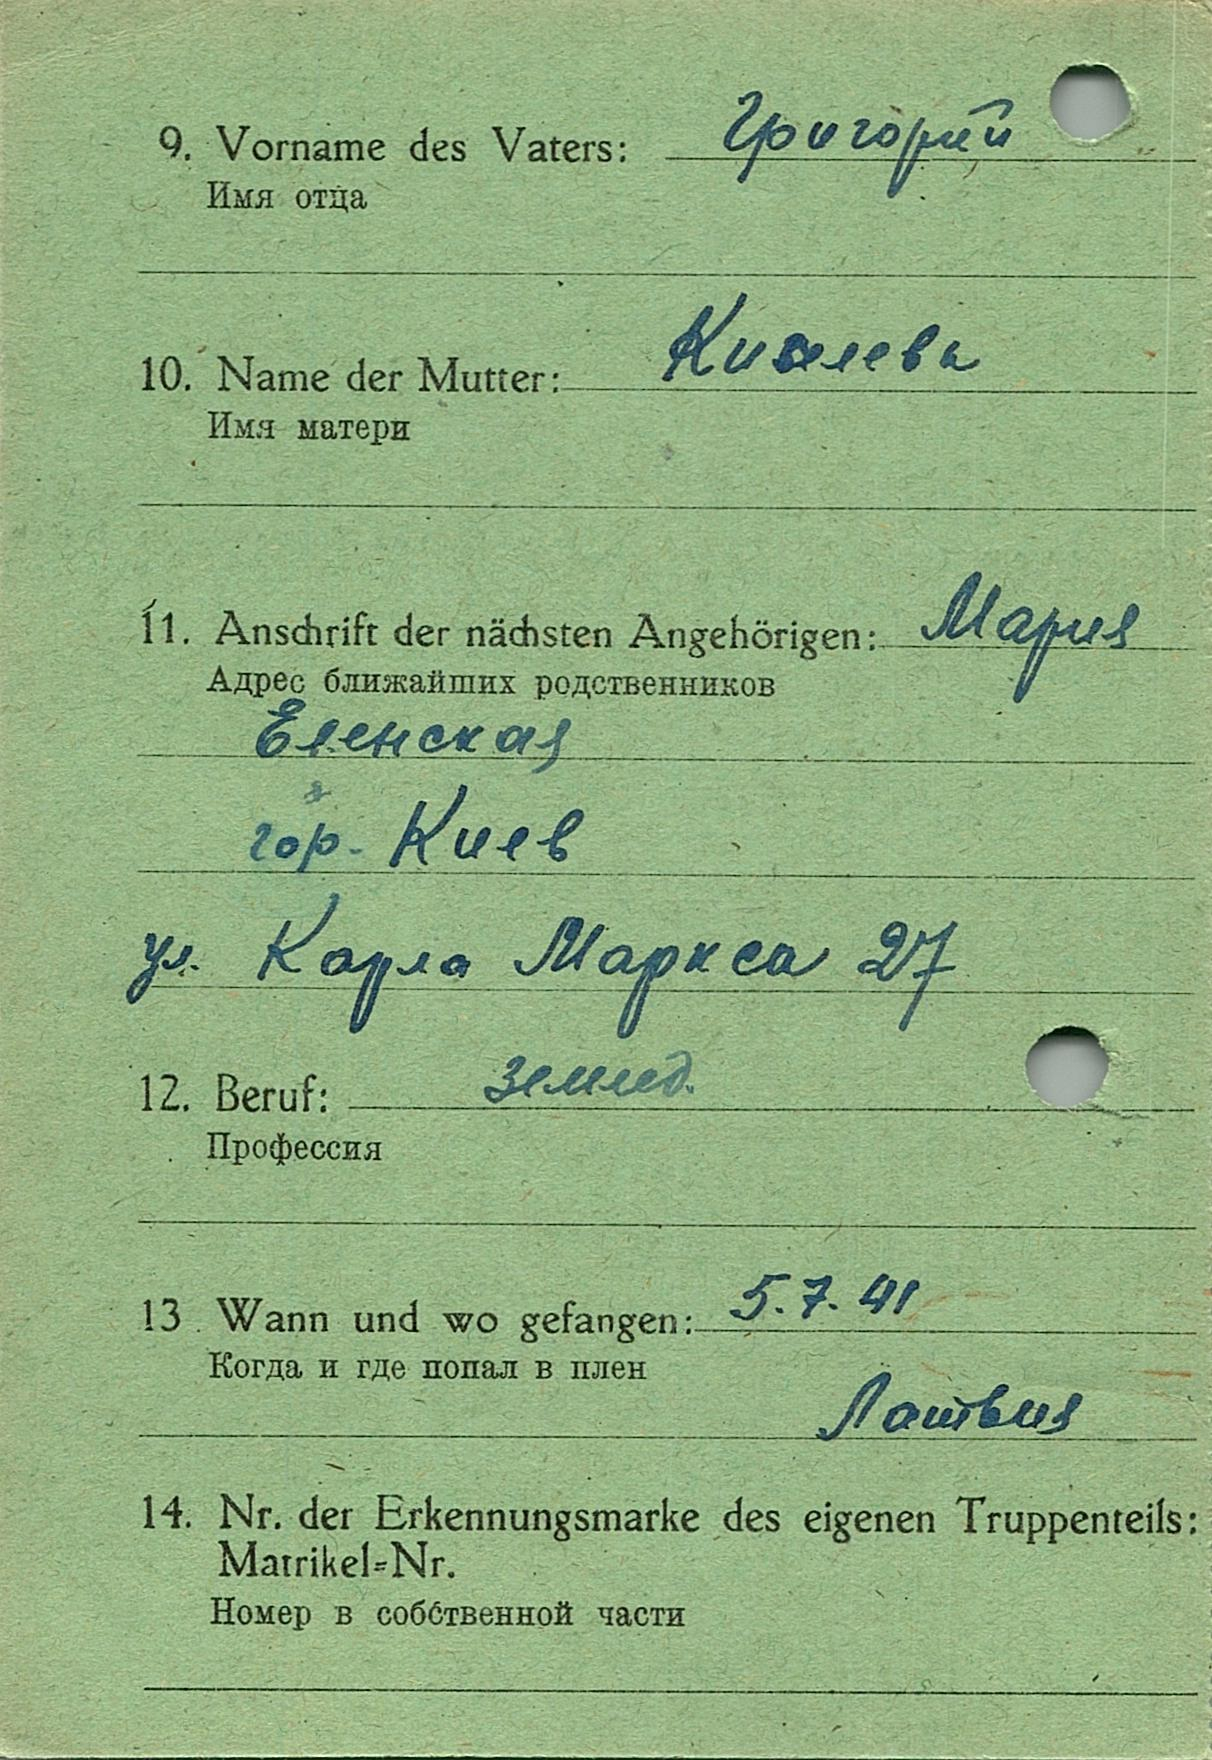 9. Vorname des Vaters: Григорий
Имя отца
10. Name der Mutter: Киселева
Имя матери
11. Anschrift der nächsten Angehörigen: Мария
Адрес ближайших родственников
Еленская
гор. Киев
ул. Карла Маркса 27
12. Beruf: землед.
Профессия
13. Wann und wo gefangen: 5.7.41
Когда и где попал в плен
Латвия
14. Nr. der Erkennungsmarke des eigenen Truppenteils:
Matrikel=Nr.
Номер в собственной части